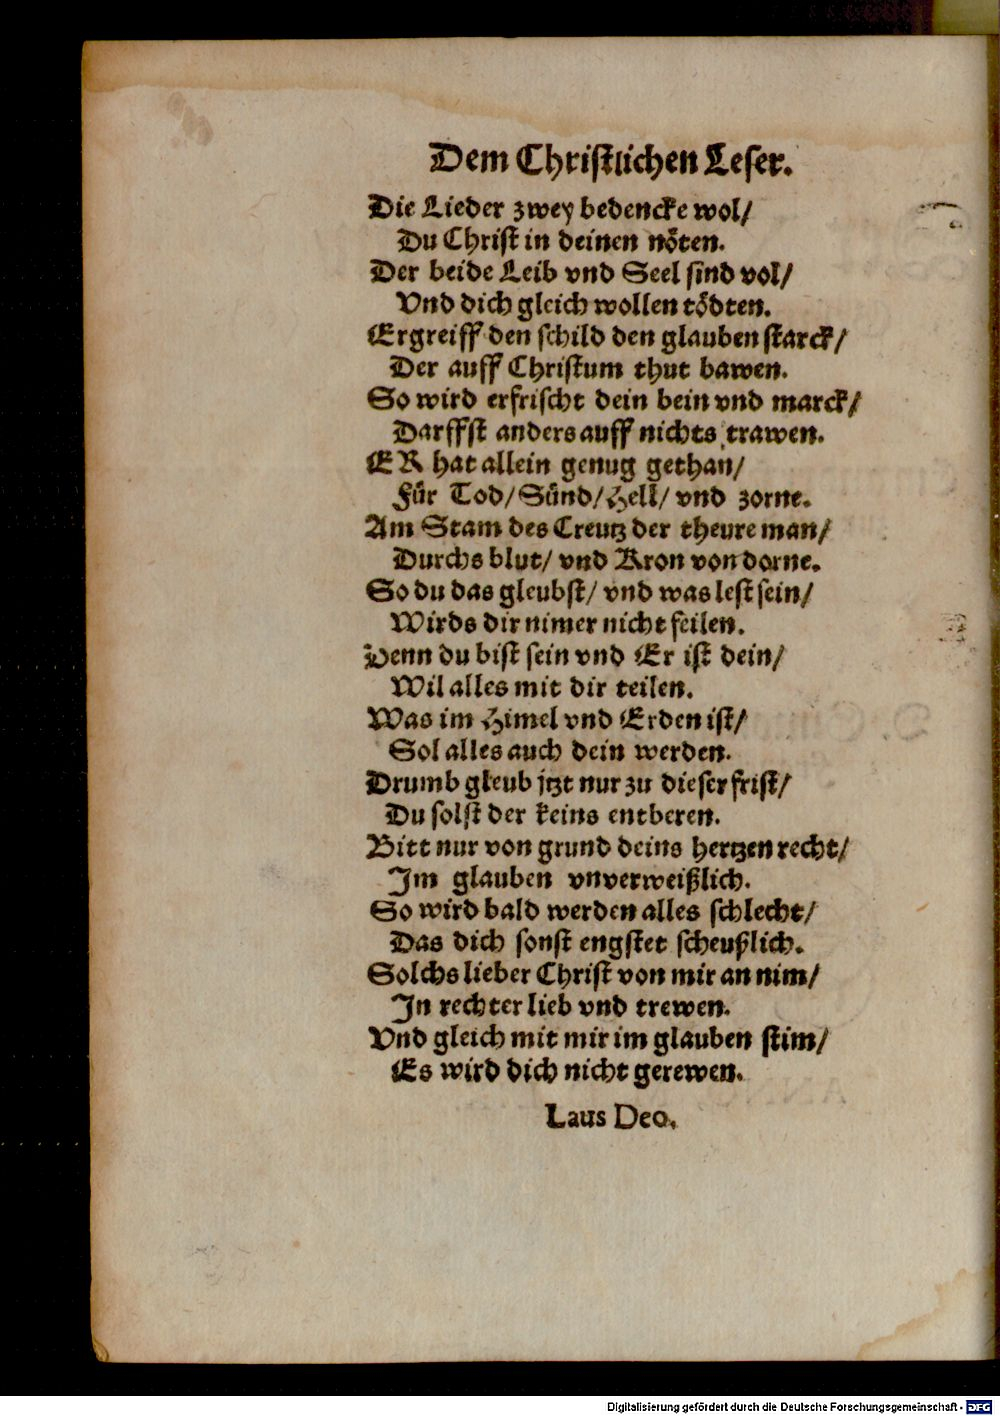 Dem Christlichen Leser.
Die Lieder zwey bedencke wol/
Du Christ in deinen nöten.
Der beide Leib vnd Seel sind vol/
Vnd dich gleich wollen tödten.
Ergreiff den schild den glauben starck/
Der auff Christum thut bawen.
So wird erfrischt dein bein vnd marck/
Darffst anders auff nichts trawen.
ER hat allein genug gethan/
Für Tod/ Sünd/ Hell/ vnd zorne.
Am Stam des Creutz der theure man/
Durchs blut/ vnd Kron von dorne.
So du das gleubst/ vnd was lest sein/
Wirds dir nimer nicht feilen.
Denn du bist sein vnd Er ist dein/
Wil alles mit dir teilen.
Was im Himel vnd Erden ist/
Sol alles auch dein werden.
Drumb gleub jtzt nur zu dieser frist/
Du solst der keins entberen.
Bitt nur von grund deins hertzen recht/
Im glauben vnverweißlich.
So wird bald werden alles schlecht/
Das dich sonst engstet scheußlich.
Solchs lieber Christ von mir an nim/
In rechter lieb vnd trewen.
Vnd gleich mit mir im glauben stim/
Es wird dich nicht gerewen.
Laus Deo.
Digitalisierung gefördert durch die Deutsche Forschungsgemeinschaft - DFG